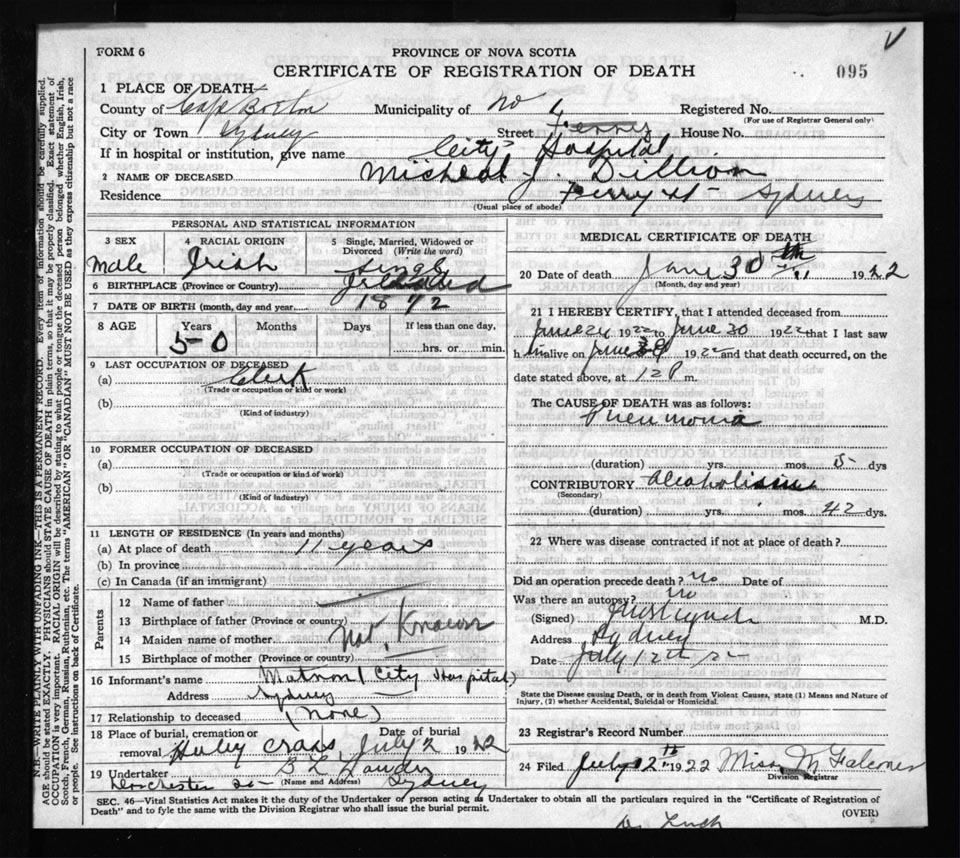 FORM 6
PROVINCE OF NOVA SCOTIA
CERTIFICATE OF REGISTRATION OF DEATH
095
1 PLACE OF DEATH
County of Cape Breton Municipality of No 4 Registered No.
(For use of Registrar General only)
City or Town Sydney Street Ferry House No.
If in hospital or institution, give name City Hospital
2 NAME OF DECEASED Micheal J. Dillion
Residence Ferry St - Sydney
(Usual place of abode)
PERSONAL AND STATISTICAL INFORMATION
3 SEX
Male
4 RACIAL ORIGIN
Irish
5 Single, Married, Widowed or
Divorced (Write the word)
Single
6 BIRTHPLACE (Province or Country) Ireland
7 DATE OF BIRTH (month, day and year) 1872
8 AGE Years Months Days If less than one day,
50 hrs. or min.
9 LAST OCCUPATION OF DECEASED
(a) Clerk
(Trade or occupation or kind or work)
(b)
(Kind of industry)
10 FORMER OCCUPATION OF DECEASED
(a)
(Trade or occupation or kind of work)
(b)
(Kind of industry)
11 LENGTH OF RESIDENCE (In years and months)
(a) At place of death 11 years
(b) In province
(c) In Canada (if an immigrant)
Parents
12 Name of father
13 Birthplace of father (Province or country)
14 Maiden name of mother Not Known
15 Birthplace of mother (Province or country)
16 Informant's name Matron (City Hospital)
Address Sydney
17 Relationship to deceased (None)
18 Place of burial, cremation or Date of burial
removal Holy Cross, July 2 1922
19 Undertaker
(Name and Address)
Dorchester St - Sydney
MEDICAL CERTIFICATE OF DEATH
20 Date of death June 30th 1922
(Month, day and year)
21 I HEREBY CERTIFY, that I attended deceased from
June 24 1922 to June 30 1922 that I last saw
him alive on June 1922 and that death occurred, on the
date stated above, at 12 P m.
The CAUSE OF DEATH was as follows:
Pneumonia
(duration) yrs. mos. 5 dys
CONTRIBUTORY Alcoholism
(Secondary)
(duration) yrs. mos. 42 dys.
22 Where was disease contracted if not at place of death?
Did an operation precede death? no Date of
Was there an autopsy? no
(Signed) M.D.
Address Sydney
Date July 12th 22
State the Disease causing Death, or in death from Violent Causes, state (1) Means and Nature of
Injury, (2) whether Accidental, Suicidal or Homicidal.
23 Registrar's Record Number
24 Filed July 12th 1922 Miss M Falconer
Division Registrar
SEC. 46—Vital Statistics Act makes it the duty of the Undertaker or person acting as Undertaker to obtain all the particulars required in the "Certificate of Registration of
Death" and to fyle the same with the Division Registrar who shall issue the burial permit.
(OVER)
Dr Lynch
N.B.—WRITE PLAINLY WITH UNFADING INK—THIS IS A PERMANENT RECORD. Every item of information should be carefully supplied.
AGE should be stated EXACTLY. PHYSICIANS should STATE CAUSE OF DEATH in plain terms, so that it may be properly classified. Exact statement of
OCCUPATION is very important. RACIAL ORIGIN will be described by stating to what people or tongue the deceased person belonged whether English, Irish,
Scotch, French, German, Russian, Ruthenian, etc. The terms "AMERICAN" OR "CANADIAN" MUST NOT BE USED as they express citizenship but not a race
or people. See instructions on back of Certificate.